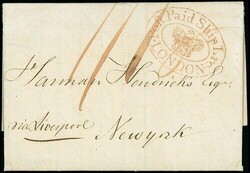 Paid Ship Lre
LONDON
Harman Hendricks Esqr.
via Liverpool
Newyork